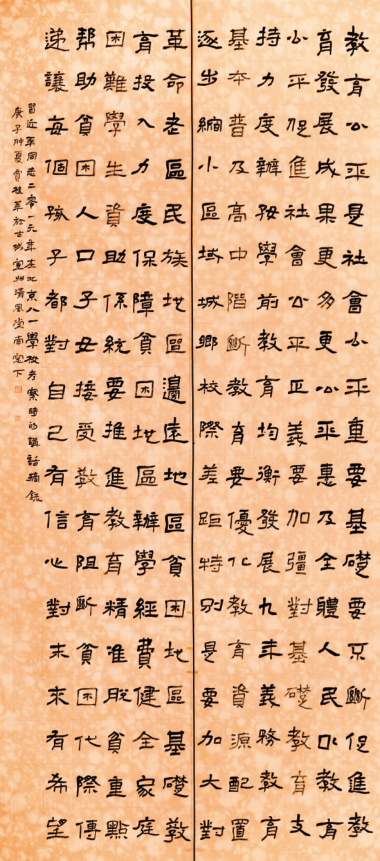 教育公平是社會公平重要基礎要不斷促進教
育發展成果更多更公平惠及全體人民以教育
公平促進社會公平正義要加彊對基礎教育支
持力度辦好學前教育均衡發展九年義務教育
基本普及高中階斷教育要優化教育資源配置
逐步縮小區域城鄉校際差距特別是要加大對
革命老區民族地區邊遠地區貧困地區基礎教
育投入力度保障貧困地區辦學經費健全家庭
困難學生資助係統要推進教育精准脫貧重點
幫助貧困人口子女接受教育阻斷貧困代際傳
遞讓每個孩子都對自己有信心對未來有希望
習近平同志二零一六年在北京八一學校考察時的講話摘錄
庚子仲夏於古城南窗下